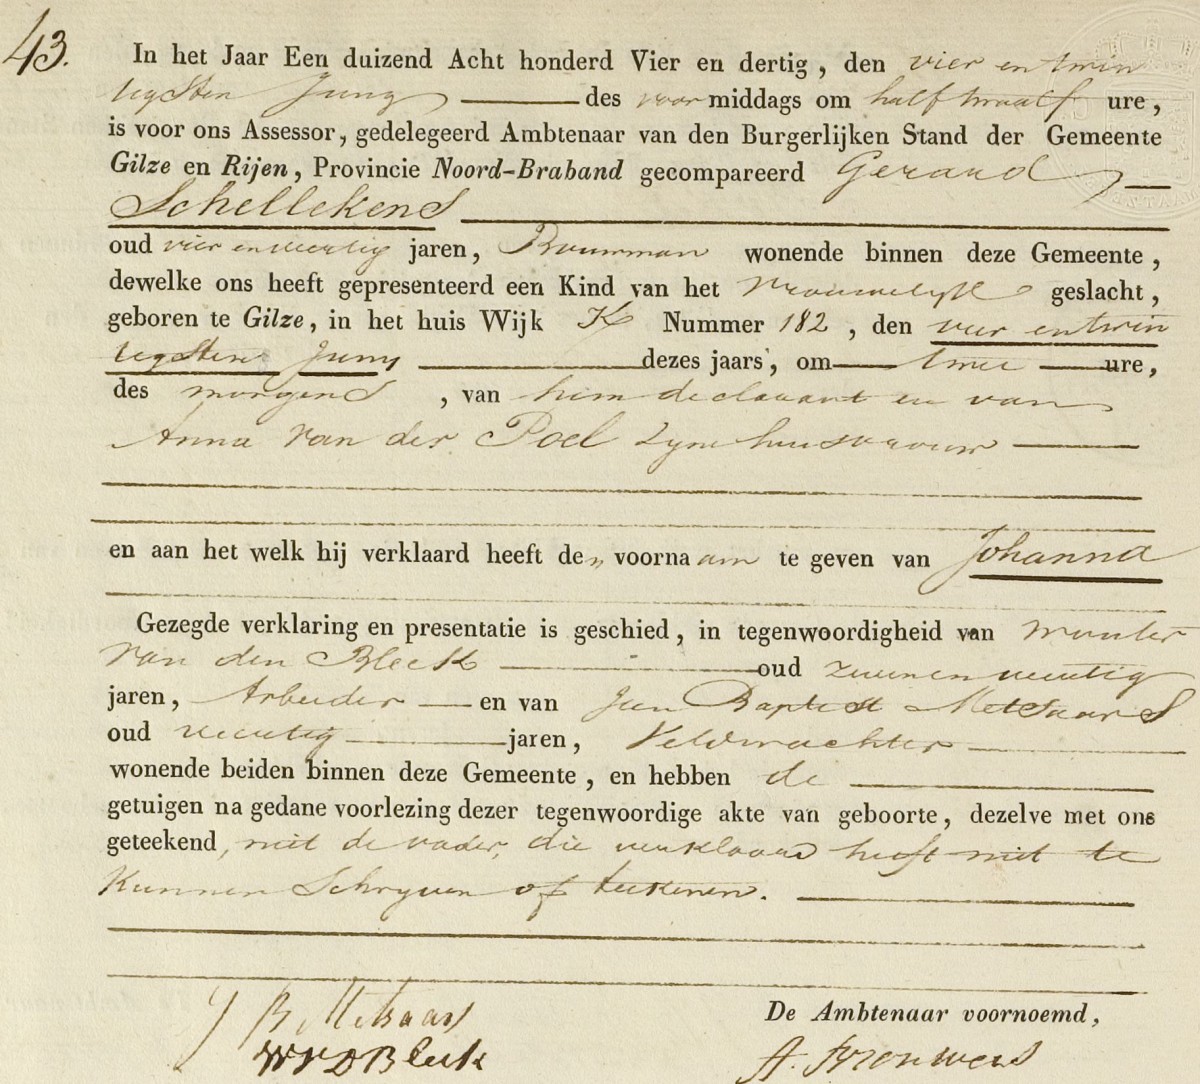 43.
In het Jaar Een duizend Acht honderd Vier en dertig, den vier en twin
tegsten Juny des voormiddags om half twaalf ure,
is voor ons Assessor, gedelegeerd Ambtenaar van den Burgerlijken Stand der Gemeente
Gilze en Rijen, Provincie Noord-Braband gecompareerd Gerard
Schellekens
oud vier en veertig jaren, Bouwman wonende binnen deze Gemeente,
dewelke ons heeft gepresenteerd een Kind van het vrouwelyk geslacht,
geboren te Gilze, in het huis Wijk K Nummer 182, den vier en twin
tegsten Juny dezes jaars, om twee ure,
des morgens, van hem declarant en van
Anna van der Poel zyne huisvrouw
en aan het welk hij verklaard heeft den voornaam te geven van Johanna
Gezegde verklaring en presentatie is geschied, in tegenwoordigheid van Wouter
van den Bleek oud veertig
jaren, Arbeider en van Jan Baptist Metsaars
oud veertig jaren, Veldwachter
wonende beiden binnen deze Gemeente, en hebben de
getuigen na gedane voorlezing dezer tegenwoordige akte van geboorte, dezelve met ons
geteekend, niet de vader, die verklaard heeft niet te
kunnen schryven of teekenen.
J B Metsaars
De Ambtenaar voornoemd,
W V D Bleek
A. Brouwers